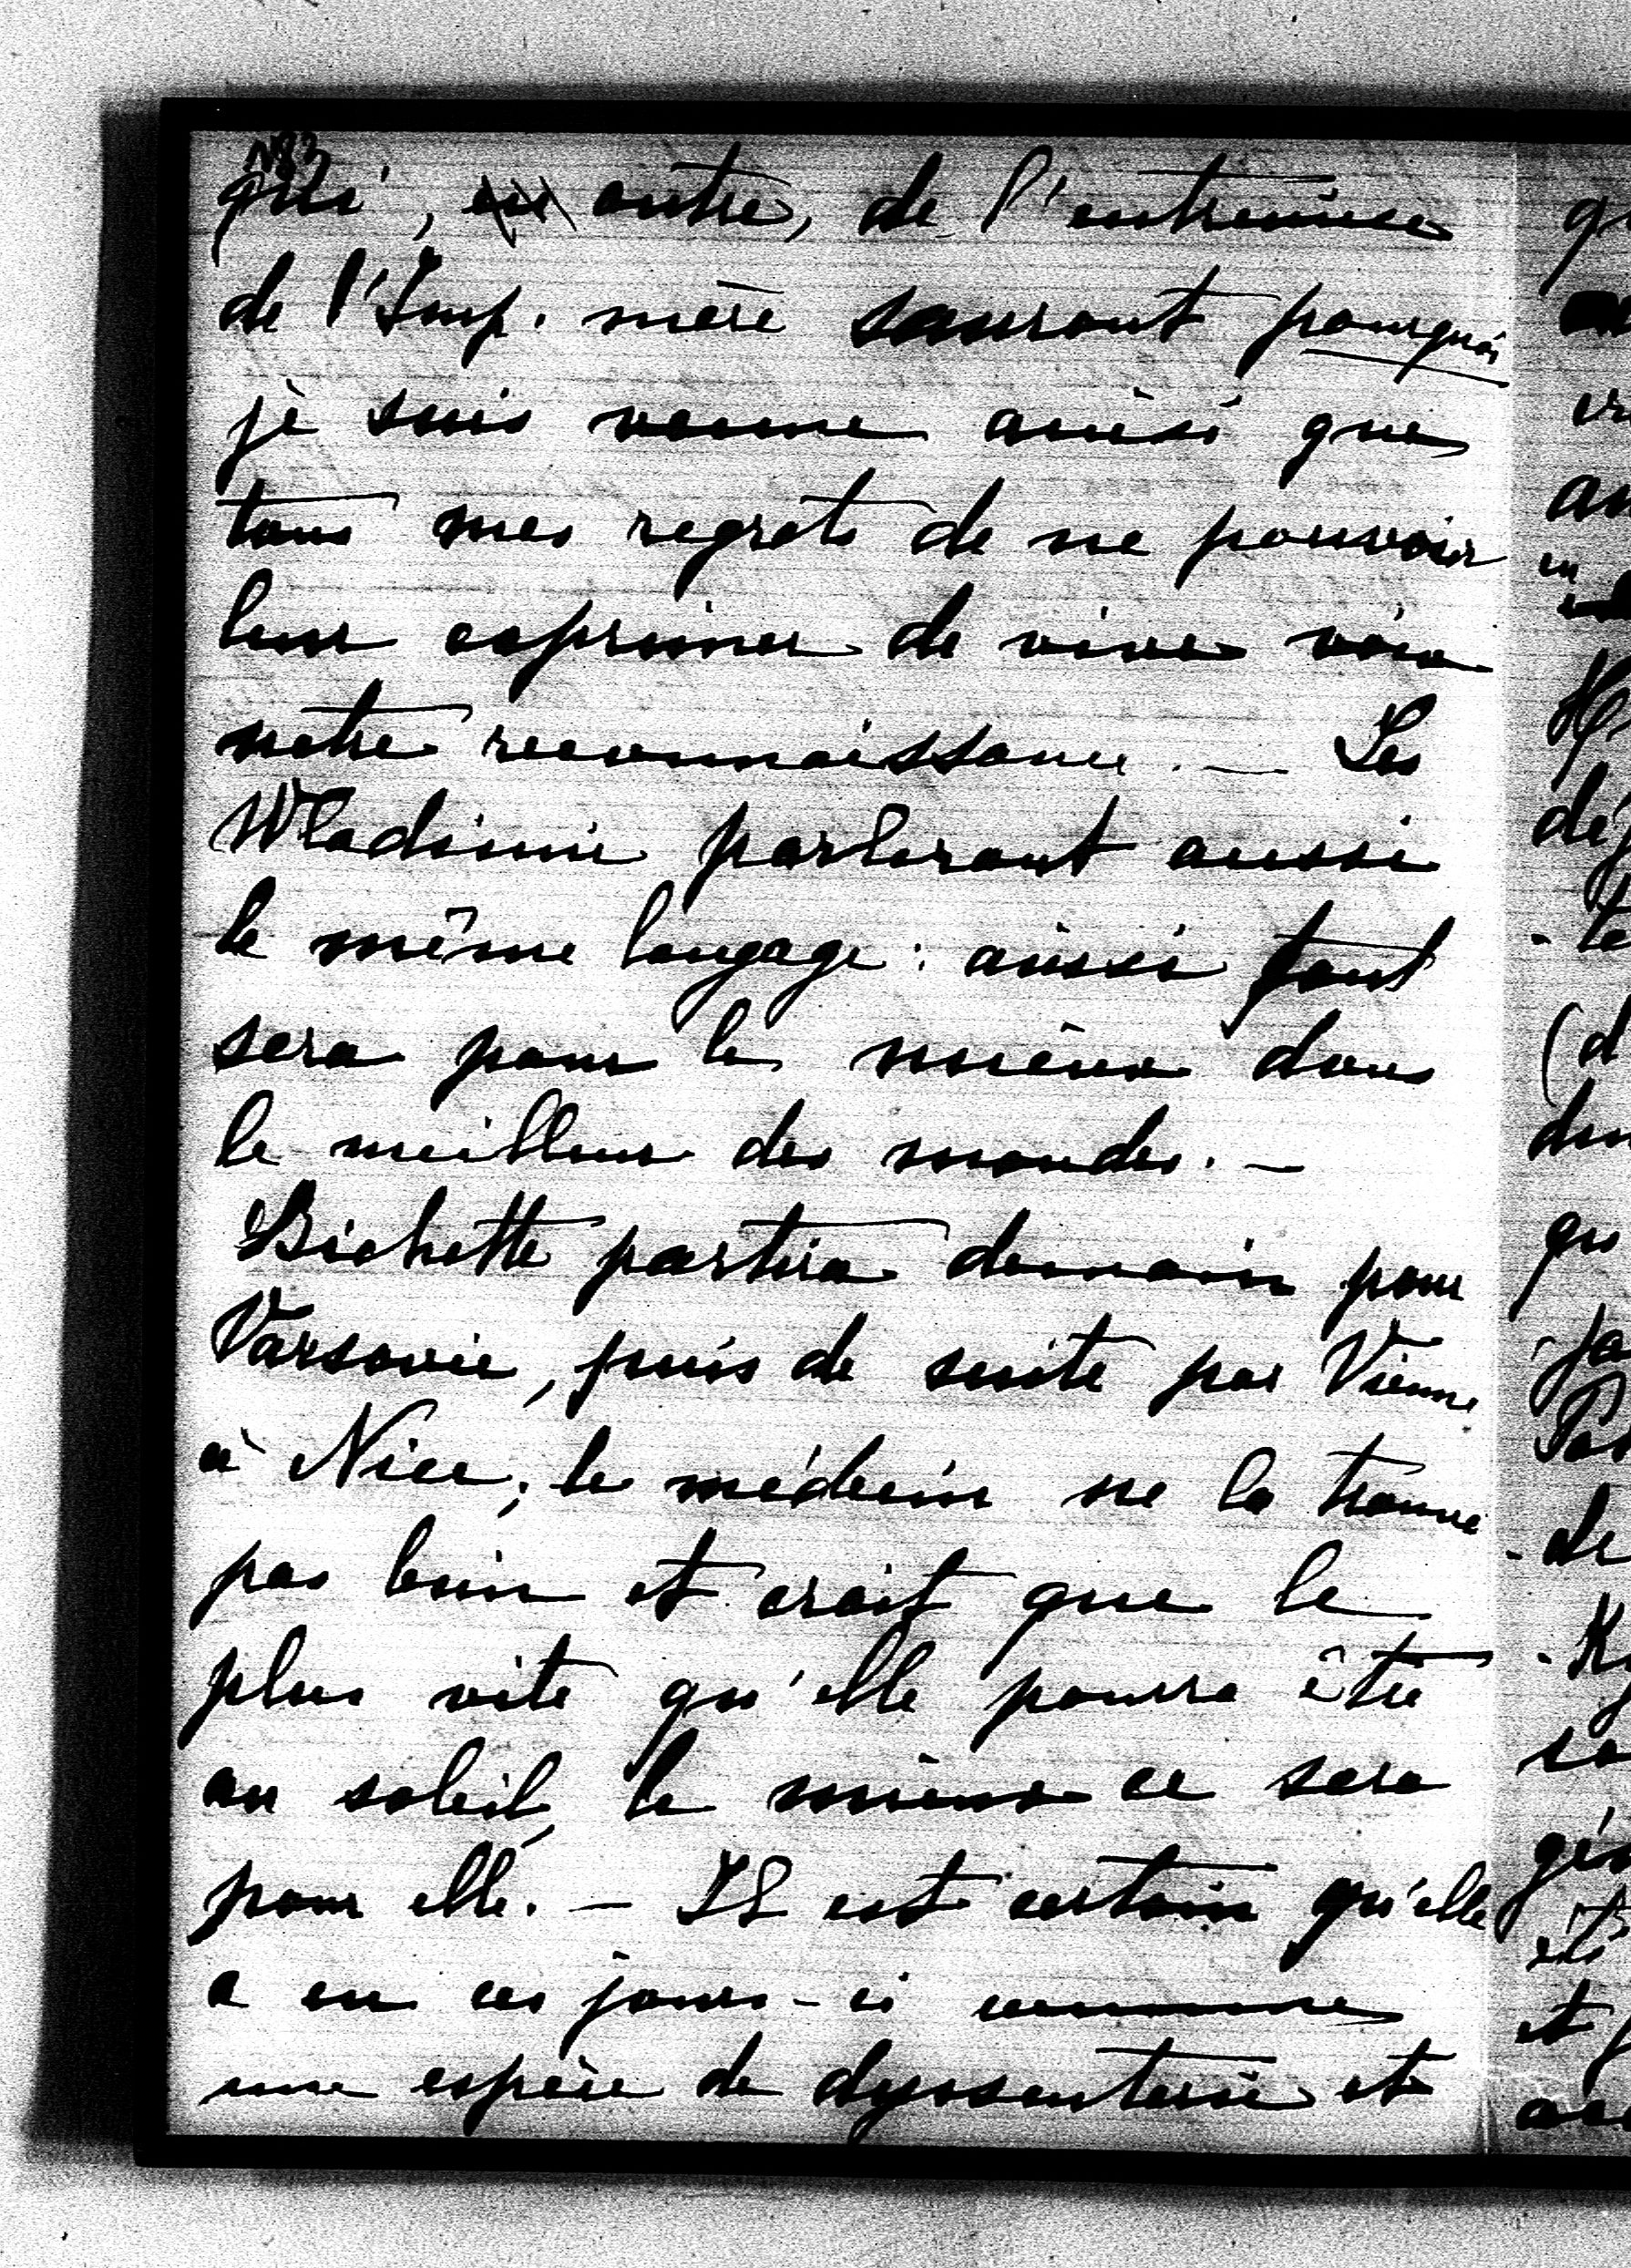 N83
qui, en outre, de l'entremise
de l'Imp. mère sauront pourquoi
je suis venue ainsi que
tous mes regrets de ne pouvoir
leur exprimer de vive voix
notre reconnaissance. — Les
Wladimir parleront aussi
le même langage : aussi tout
sera pour le mieux dans
le meilleur des mondes. —
Bichette partira demain pour
Varsovie, puis de suite par Vienne
à Nice; le médecin ne la trouve
pas bien et croit que le
plus vite qu'elle pourra être
au soleil, le mieux ce sera
pour elle. — Il est certain qu'elle
a eu ces jours-ci comme
une espèce de dyssenterie et